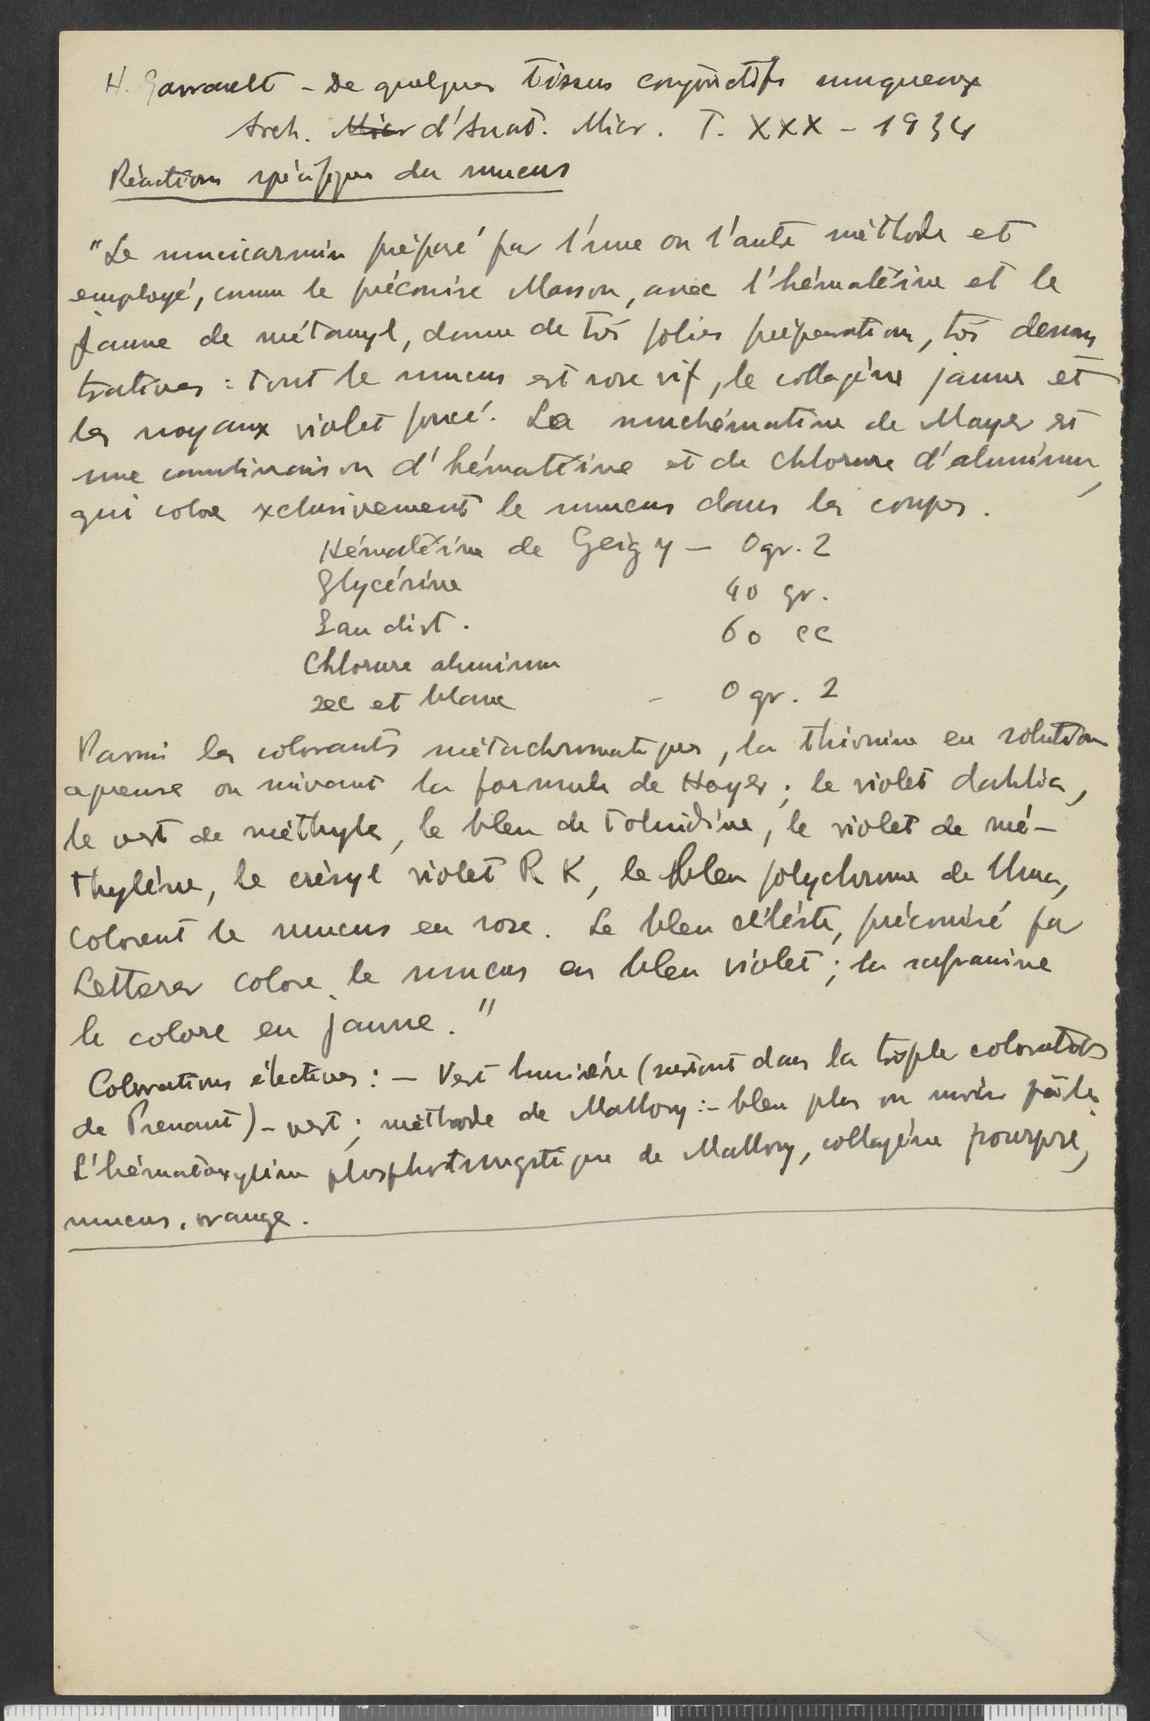 H. Garrault - De quelques tissus conjonctifs muqueux
Arch. Micr d'Anat. Micr. T. XXX - 1934
Réactions spécifiques du mucus
"Le mucicarmin préparé par l'une ou l'autre méthode et
employé, comme le préconise Masson, avec l'hématéine et le
jaune de métanyl, donne de très jolies préparations, très démons
tratives : tout le mucus est rose vif, le collagène jaune et
les noyaux violet foncé. La muchématéine de Mayer est
une combinaison d'hématéine et de chlorure d'aluminium,
qui colore exclusivement le mucus dans les coupes.
Hématéine de Geigy - 0gr. 2
Glycérine 40 gr.
Eau dist. 60 cc
Chlorure aluminium
sec et blanc - 0gr. 2
Parmi les colorants métachromatiques, la thionine en solution
aqueuse ou suivant la formule de Hoyer ; le violet dahlia,
le vert de méthyle, le bleu de toluidine, le violet de mé-
thylène, le crésyl violet R K, le bleu polychrome de Unna,
colorent le mucus en rose. Le bleu céleste, préconisé par
Letterer colore le mucus en bleu violet ; la safranine
le colore en jaune."
Colorations électives : - Vert lumière (surtout dans la triple coloration
de Prenant) - vert ; méthode de Mallory :- bleu plus ou moins pâle.
L'hématoxyline phosphotungstique de Mallory, collagène pourpre,
mucus, orange.